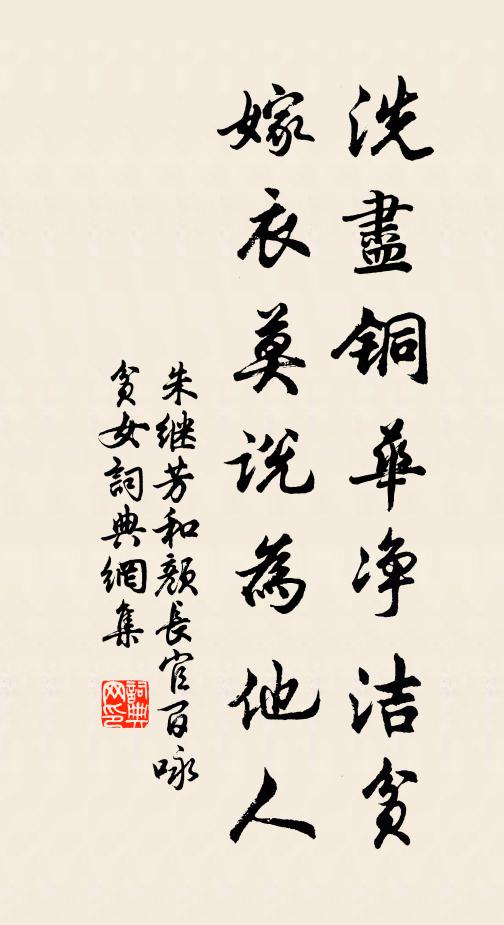 洗盡銅華净洁貧
嫁衣莫説為他人
朱继芳和颜長官百咏
貧女詞典網集
詞典网印